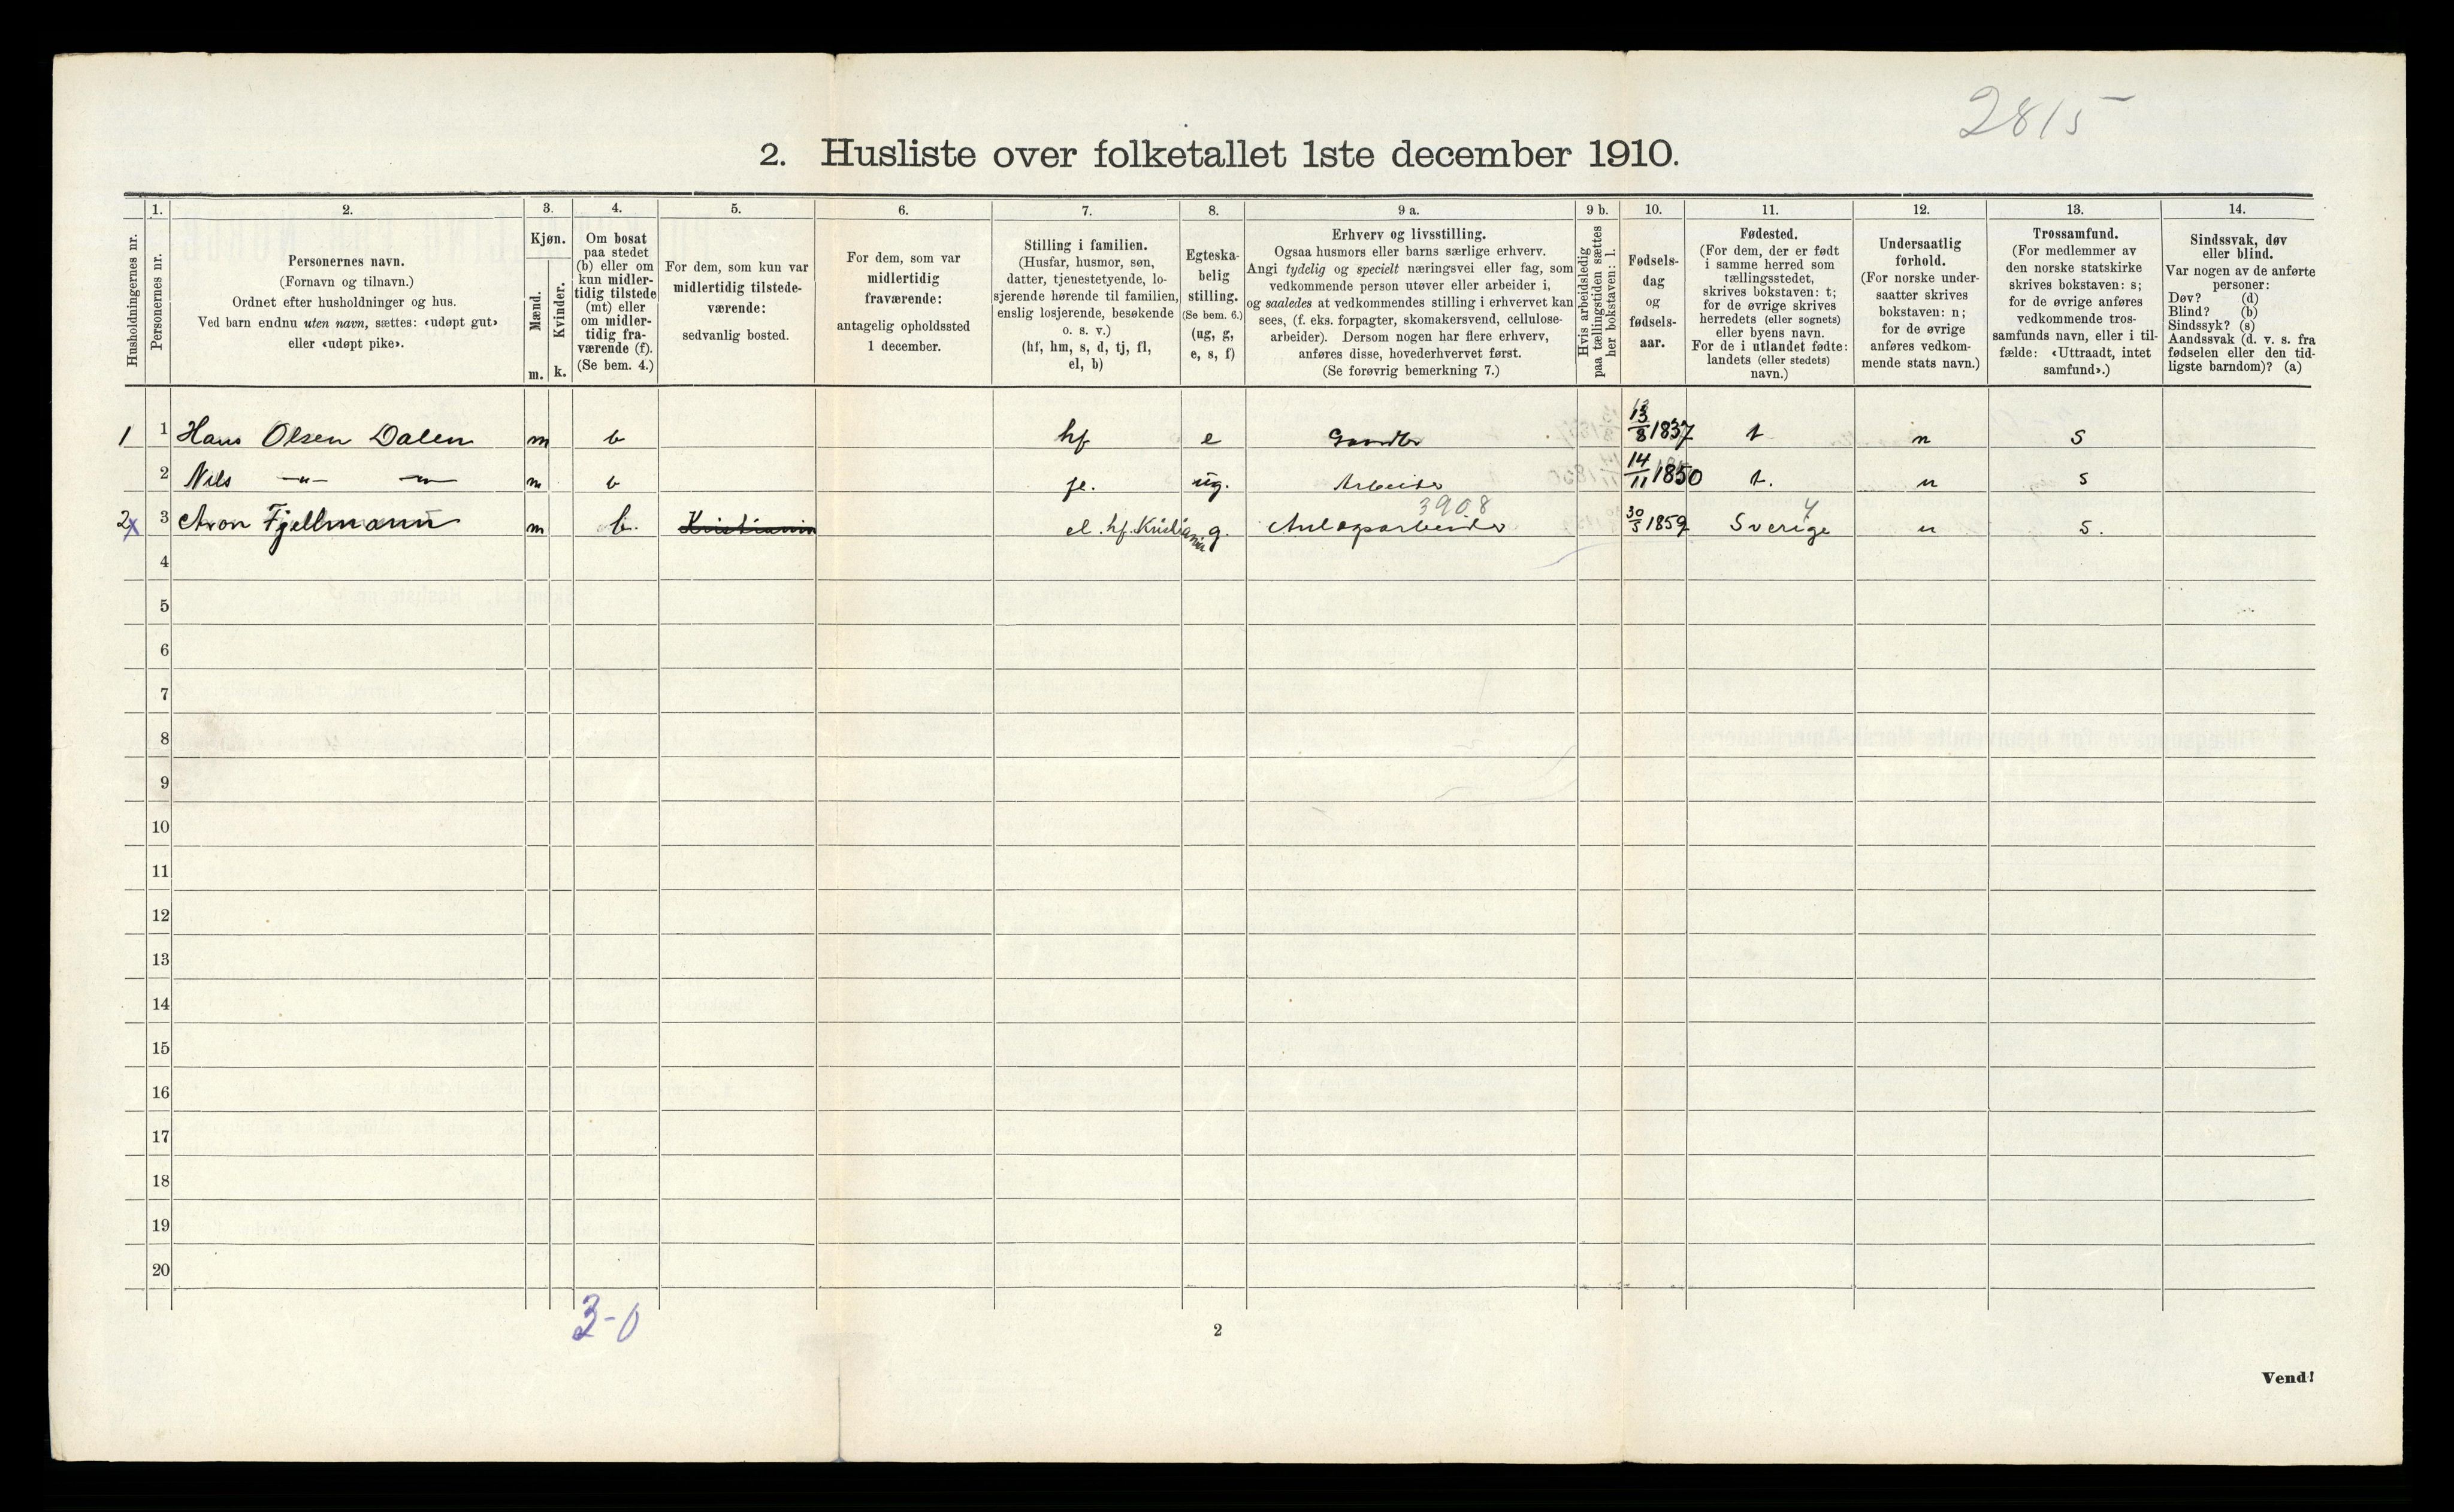 2815
2. Husliste over folketallet 1ste december 1910.
Husholdningernes nr.
1.
Personernes nr.
2.
Personernes navn.
(Fornavn og tilnavn.)
Ordnet efter husholdninger og hus.
Ved barn endnu uten navn, sættes: «udøpt gut»
eller «udøpt pike».
3.
Kjøn.
Mænd.
Kvinder.
m. k.
4.
Om bosat
paa stedet
(b) eller om
kun midler-
tidig tilstede
(mt) eller
om midler-
tidig fra-
værende (f).
(Se bem. 4.)
5.
For dem, som kun var
midlertidig tilstede-
værende:
sedvanlig bosted.
6.
For dem, som var
midlertidig
fraværende:
antagelig opholdssted
1 december.
7.
Stilling i familien.
(Husfar, husmor, søn,
datter, tjenestetyende, lo-
sjerende hørende til familien,
enslig losjerende, besøkende
o. s. v.)
(hf, hm, s, d, tj, fl,
el, b)
8.
Egteska-
belig
stilling.
(Se bem. 6.)
(ug, g,
e, s, f)
9 a.
Erhverv og livsstilling.
Ogsaa husmors eller barns særlige erhverv.
Angi tydelig og specielt næringsvei eller fag, som
vedkommende person utøver eller arbeider i,
og saaledes at vedkommendes stilling i erhvervet kan
sees, (f. eks. forpagter, skomakersvend, cellulose-
arbeider). Dersom nogen har flere erhverv,
anføres disse, hovederhvervet først.
(Se forøvrig bemerkning 7.)
9 b.
Hvis arbeidsledig
paa tællingstiden sættes
her bokstaven: l.
10.
Fødsels-
dag
og
fødsels-
aar.
11.
Fødested.
(For dem, der er født
i samme herred som
tællingsstedet,
skrives bokstaven: t;
for de øvrige skrives
herredets (eller sognets)
eller byens navn.
For de i utlandet fødte:
landets (eller stedets)
navn.)
12.
Undersaatlig
forhold.
(For norske under-
saatter skrives
bokstaven: n;
for de øvrige
anføres vedkom-
mende stats navn.)
13.
Trossamfund.
(For medlemmer av
den norske statskirke
skrives bokstaven: s;
for de øvrige anføres
vedkommende tros-
samfunds navn, eller i til-
fælde: «Uttraadt, intet
samfund».)
14.
Sindssvak, døv
eller blind.
Var nogen av de anførte
personer:
Døv? (d)
Blind? (b)
Sindssyk? (s)
Aandssvak (d. v. s. fra
fødselen eller den tid-
ligste barndom)? (a)
1 1 Hans Olsen Dalen m b hf e 13/8 1837 t n s
2 Nils -"- -"- m b fl. ug. Arbeider 14/11 1850 t. n s
3908 4
2 x 3 Aron Fjellmann m b. Kristiania el. hf. Kristiania g. Anlægsarbeider 30/5 1859 Sverige n s.
4
5
6
7
8
9
10
11
12
13
14
15
16
17
18
19
20
3-0
2
Vend!